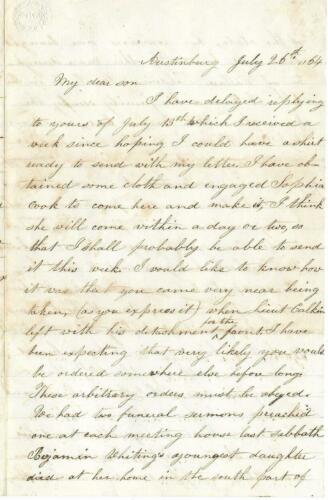 Austinburg July 26th /64
My dear son
I have delayed replying
to yours of July 13th which I received a
week since hoping I could have a shirt
ready to send with my letter. I have ob-
tained some cloth and engaged Sophia
Cook to come here and make it, I think
she will come within a day or two, so
that I shall probably be able to send
it this week. I would like to know how
it was that you came very near being
taken, (as you express it) when Lieut Calkins
left with his detachment for the front. I have
been expecting that very likely you would
be ordered somewhere else before long.
These arbitrary orders must be obeyed.
We had two funeral sermons preached
one at each meeting house last sabbath
Benjamin Whiting's youngest daughter
died at her home in the south part of